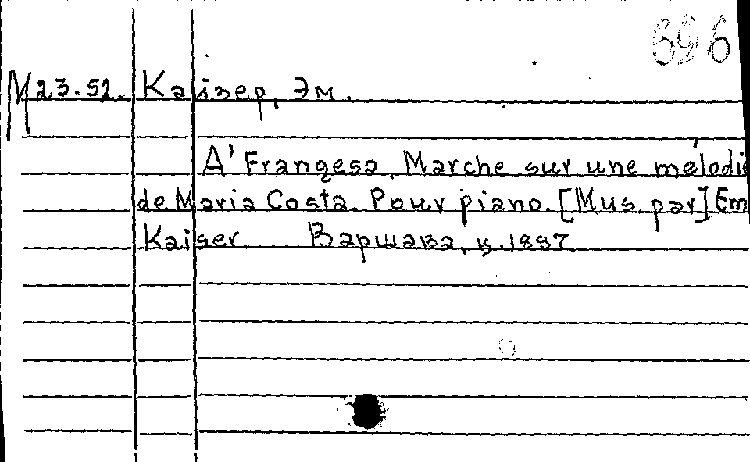 696
M 23.52. Кайзер, Эм.
A' Frangesa. Marche sur une mélodie
de Maria Costa. Pour piano. [Mus. par] Em.
Kaiser. Варшава, ц. 1887